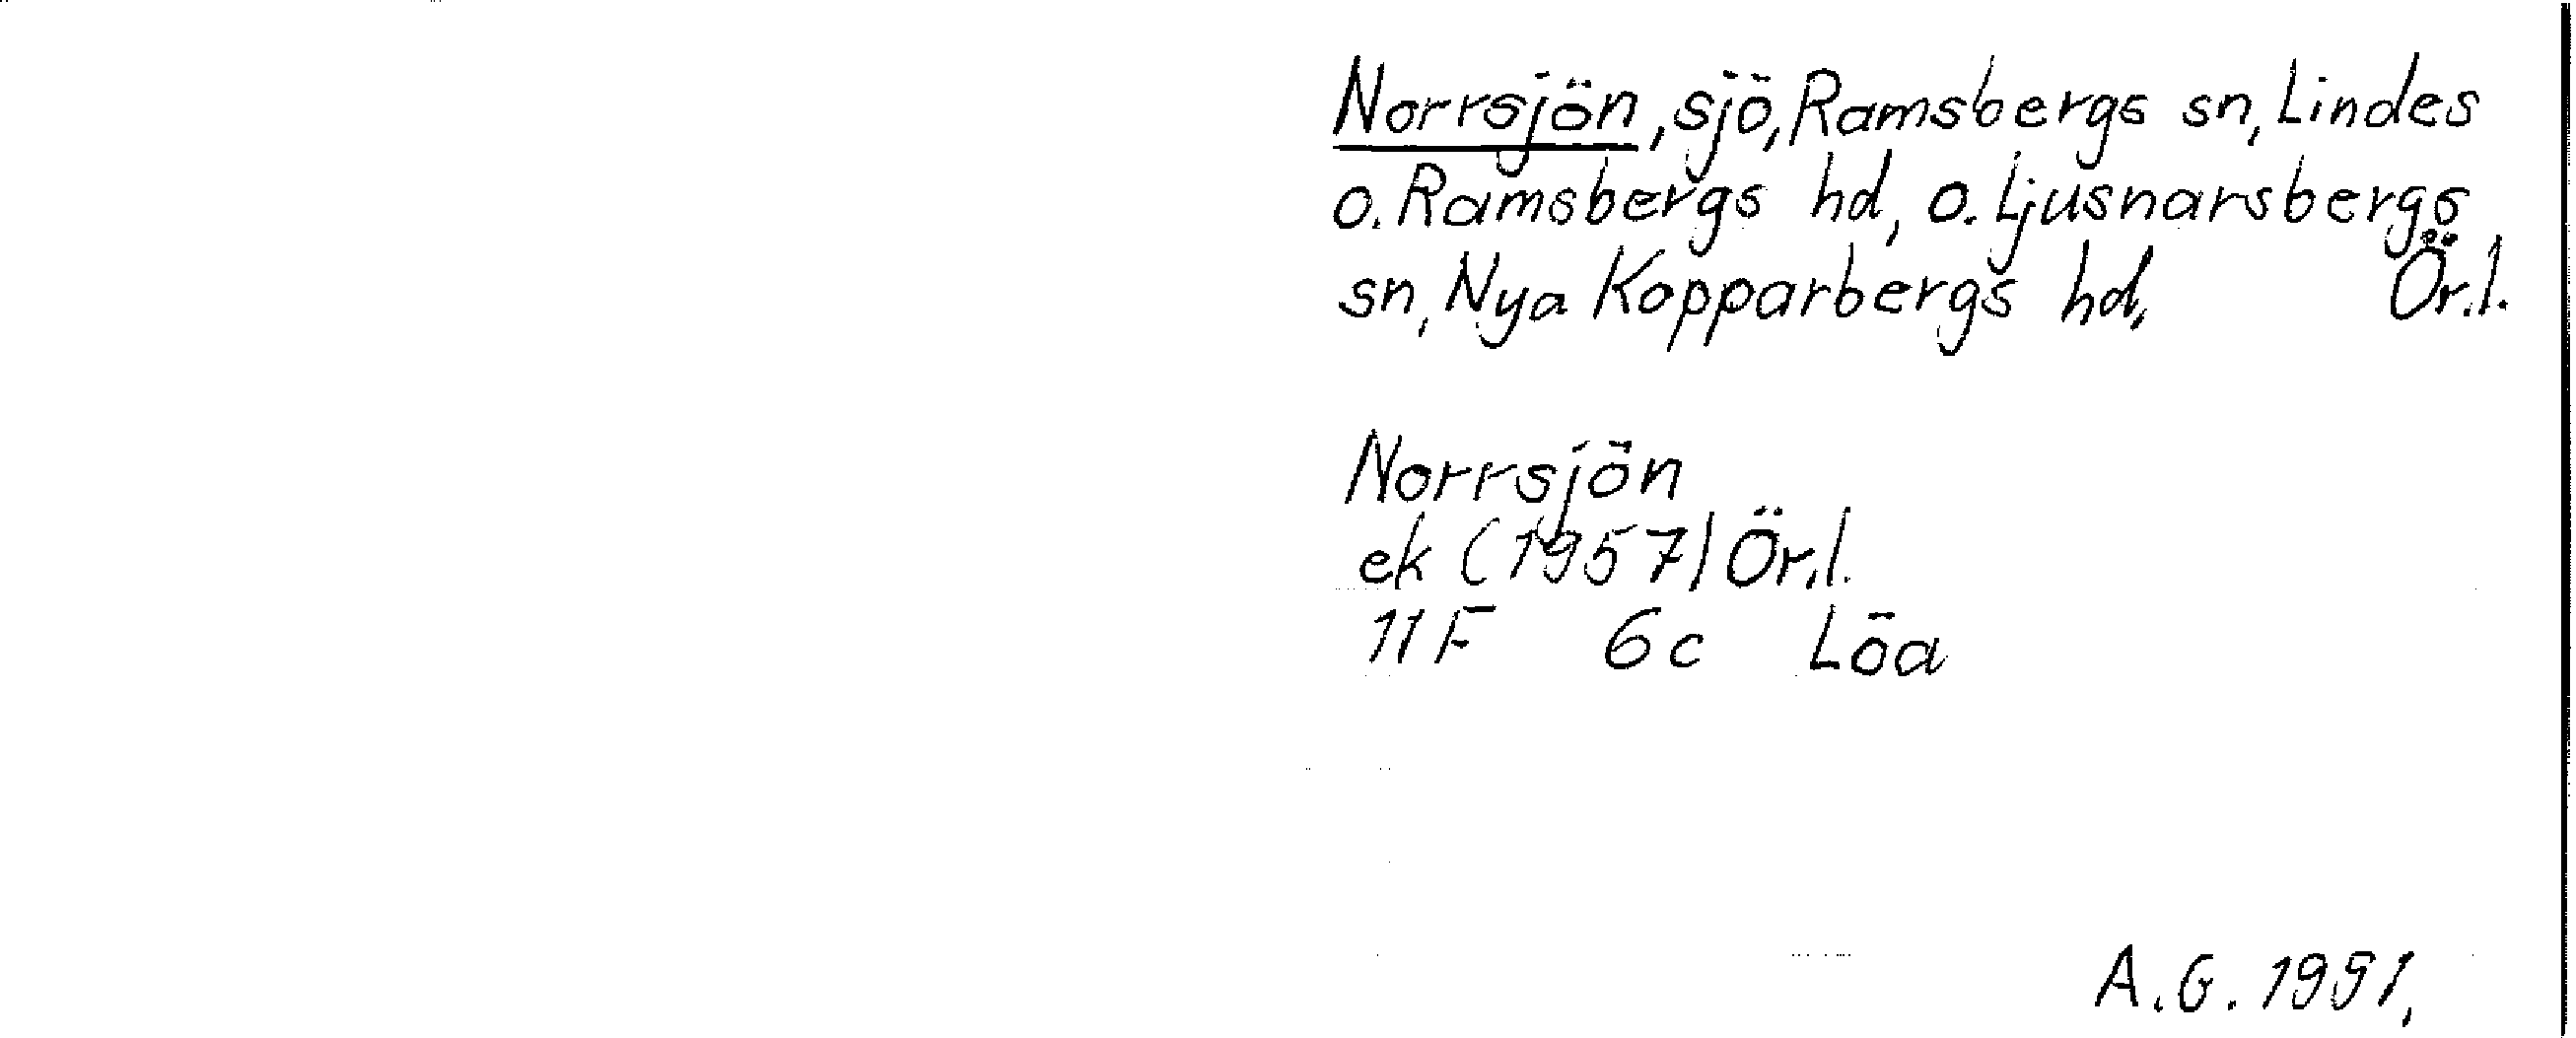 Norrsjön, sjö, Ramsbergs sn, Lindes
o. Ramsbergs hd, o. Ljusnarsbergs
sn, Nya Kopparbergs hd, Ör.l.
Norrsjön
ek (1957) Ör.l.
11F 6c Löa
A.G. 1991.